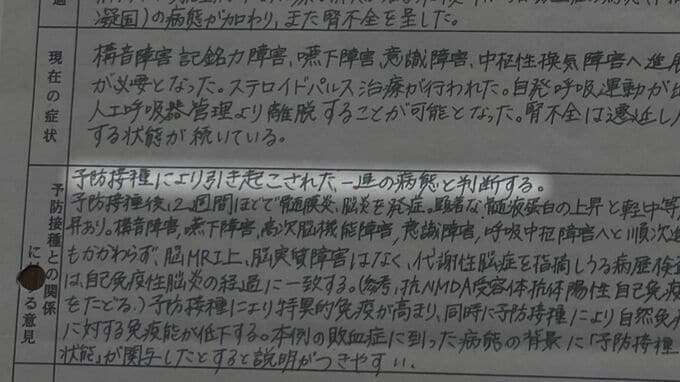 過
凝固)の病態が加わり、また腎不全を呈した。
現在の症状
構音障害、記銘力障害、嚥下障害、意識障害、中枢性換気障害へ進展
が必要となった。ステロイドパルス治療が行われた。自発呼吸運動が出
人工呼吸器管理より離脱することが可能となった。腎不全は遷延し人
する状態が続いている。
予防接種との関係
に る意見
予防接種により引き起こされた、一連の病態と判断する。
予防接種後、2週間ほどで髄膜炎、脳炎を発症。顕著な髄液蛋白の上昇と軽中等
昇あり。構音障害、嚥下障害、高次脳機能障害、意識障害、呼吸中枢障害へと順次進
もかかわらず、脳MRI上、脳実質障害はなく、代謝性脳症を指摘しうる病歴検査
は、自己免疫性脳炎の経過に一致する。(参考、抗NMDA受容体抗体陽性自己免疫
をたどる。)予防接種により特異的免疫が高まり、同時に予防接種により自然免疫
に対する免疫能が低下する。本例の敗血症に到った病態の背景に「予防接種
状態」が関与したとすると説明がつきやすい。